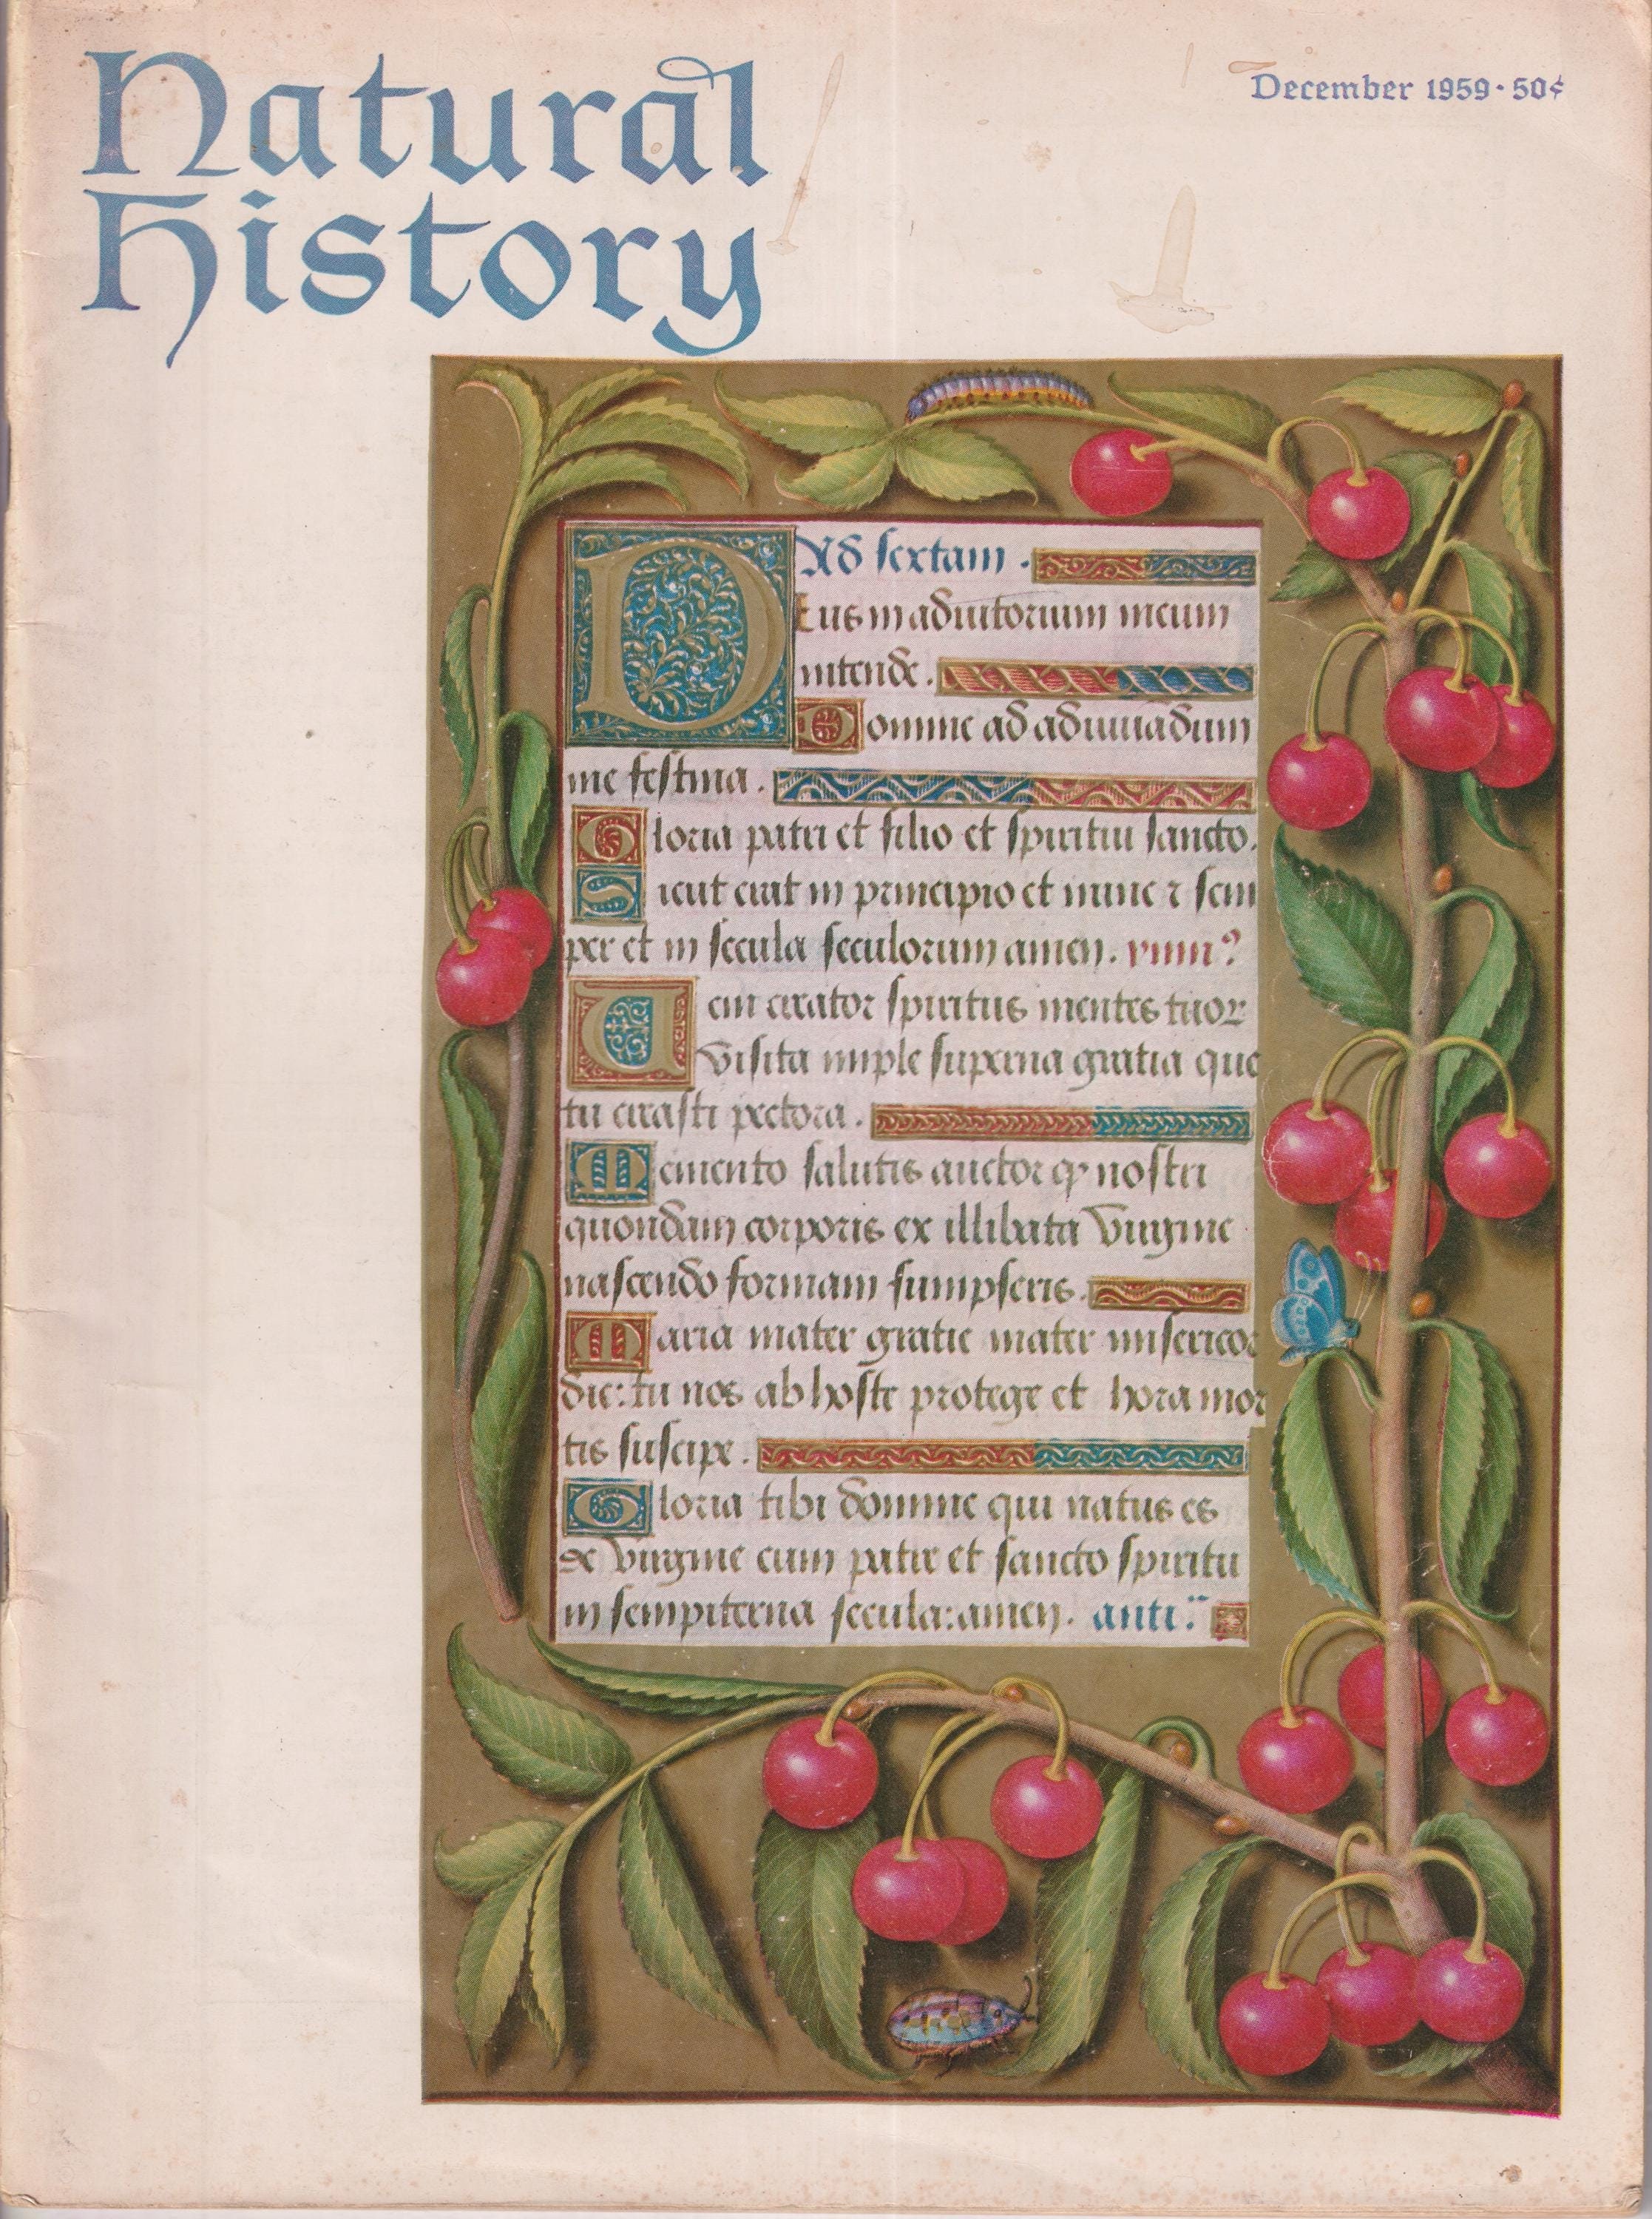 Natural
History
December 1959 · 50¢
Ad sextam .
Deus in adiutorium meum
intende .
Domine ad adiuuadum
me festina .
Gloria patri et filio et spiritui sancto.
Sicut erat in principio et nunc ⁊ sem
per et in secula seculorum amen.
Ueni creator spiritus mentes tuoꝝ
visita imple superna gratia que
tu creasti pectora .
Memento salutis auctor ꝙ nostri
quondam corporis ex illibata virgine
nascendo formam sumpseris .
Maria mater gratie mater misericor
die: tu nos ab hoste protege et hora mor
tis suscipe .
Gloria tibi domine qui natus es
de virgine cum patre et sancto spiritu
in sempiterna secula: amen. anti